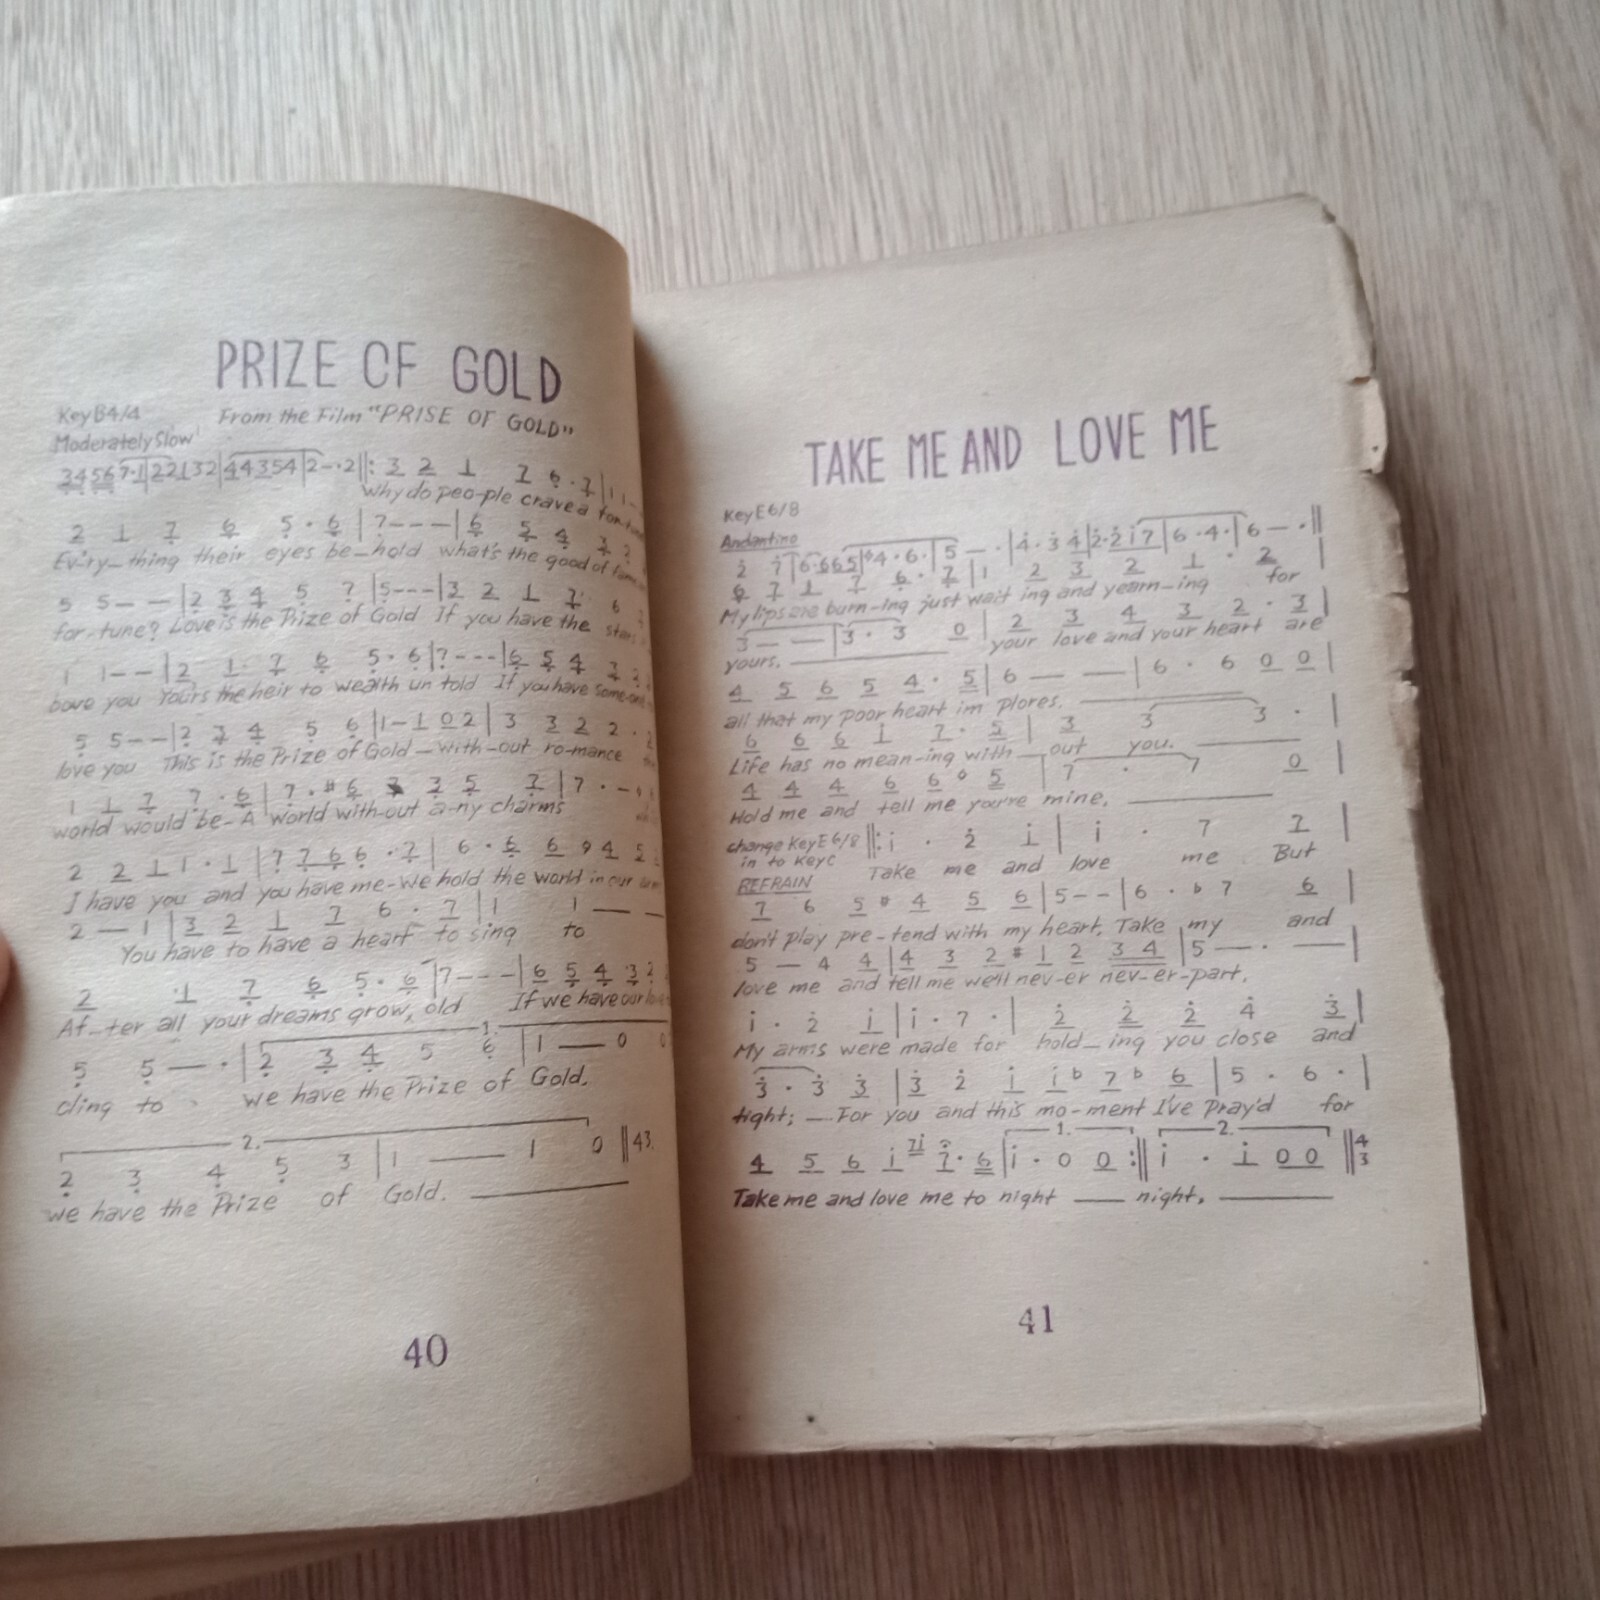 PRIZE OF GOLD
Key B4/4
From the Film "PRISE OF GOLD"
Moderately Slow
3456 7·1|22132|44354|2—·2‖: 3 2 1 7 6 · 7|1 1—
Why do peo-ple crave a for-tune
2 1 7 6 5 · 6|7---|6 5 4 3 2
Ev'ry-thing their eyes be-hold what's the good of fame
5 5--|2 3 4 5 7|5---|3 2 1 7 6
for-tune? Love is the Prize of Gold If you have the stars
1 1--|2 1· 7 6 5 · 6|7---|6 5 4 3 2
bove you Yours the heir to wealth un told If you have some-one
5 5--|2 3 4 5 6|1-1 0 2|3 3 2 2 ·
love you This is the Prize of Gold-with-out ro-mance
1 1 7 7 · 6|7 · #6 3 5 7|7 · -
world would be-A world with-out a-ny charms
2 2 1 1 · 1|7 7 6 6 · 7|6 · 6 6 4 5
I have you and you have me-We hold the world in our
2 — 1|3 2 1 7 6 · 7|1 1 — —
You have to have a heart to sing to
2 1 7 6 5 · 6|7---|6 5 4 3 2
Af-ter all your dreams grow, old If we have our love
1.
5 5 — ·|2 3 4 5 6|1 — 0 0
cling to we have the Prize of Gold.
2.
2 3 4 5 3|1 — 1 0‖43.
we have the Prize of Gold.
40
TAKE ME AND LOVE ME
Key E 6/8
Andantino
2 7|6·665|#4·6·|5 — ·|4·3 4|2·2 1 7|6·4·|6 — ·‖
6 7 1 7 6 · 7|1 2 3 2 1 · 2|
My lips are burn-ing just wait ing and yearn-ing for
3 — —|3 · 3 0|2 3 4 3 2 · 3|
yours. your love and your heart are
4 5 6 5 4 · 5|6 — —|6 · 6 0 0|
all that my poor heart im plores.
6 6 6 1 7 · 5|3 3 3 ·|
Life has no mean-ing with-out you.
4 4 4 6 6 5|7 · 7 0|
Hold me and tell me you're mine,
change Key E 6/8 ‖: 1 · 2 1|1 · 7 7|
in to Key C Take me and love me But
REFRAIN
7 6 5 #4 5 6|5--|6 · b7 6|
don't play pre-tend with my heart, Take my and
5 — 4 4|4 3 2 #1 2 3 4|5 — · —|
love me and tell me we'll nev-er nev-er-part.
1 · 2 1|1 · 7 ·|2 2 2 4 3|
My arms were made for hold-ing you close and
3 · 3 3|3 2 1 1 b7 b6|5 · 6 ·|
tight; —For you and this mo-ment I've Pray'd for
1. 2.
4 5 6 1 71 7 · 6|1 · 0 0:‖1 · 1 0 0‖43
Take me and love me to night — night,
41